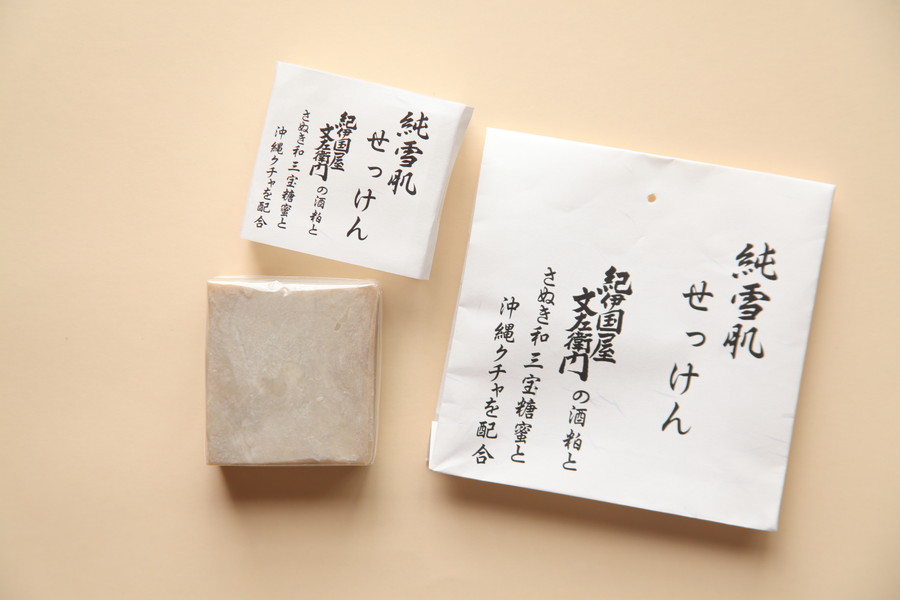 純雪肌
せっけん
紀伊国屋
文左衛門の酒粕と
さぬき和三宝糖蜜と
沖縄クチャを配合
純雪肌
せっけん
紀伊国屋
文左衛門の酒粕と
さぬき和三宝糖蜜と
沖縄クチャを配合